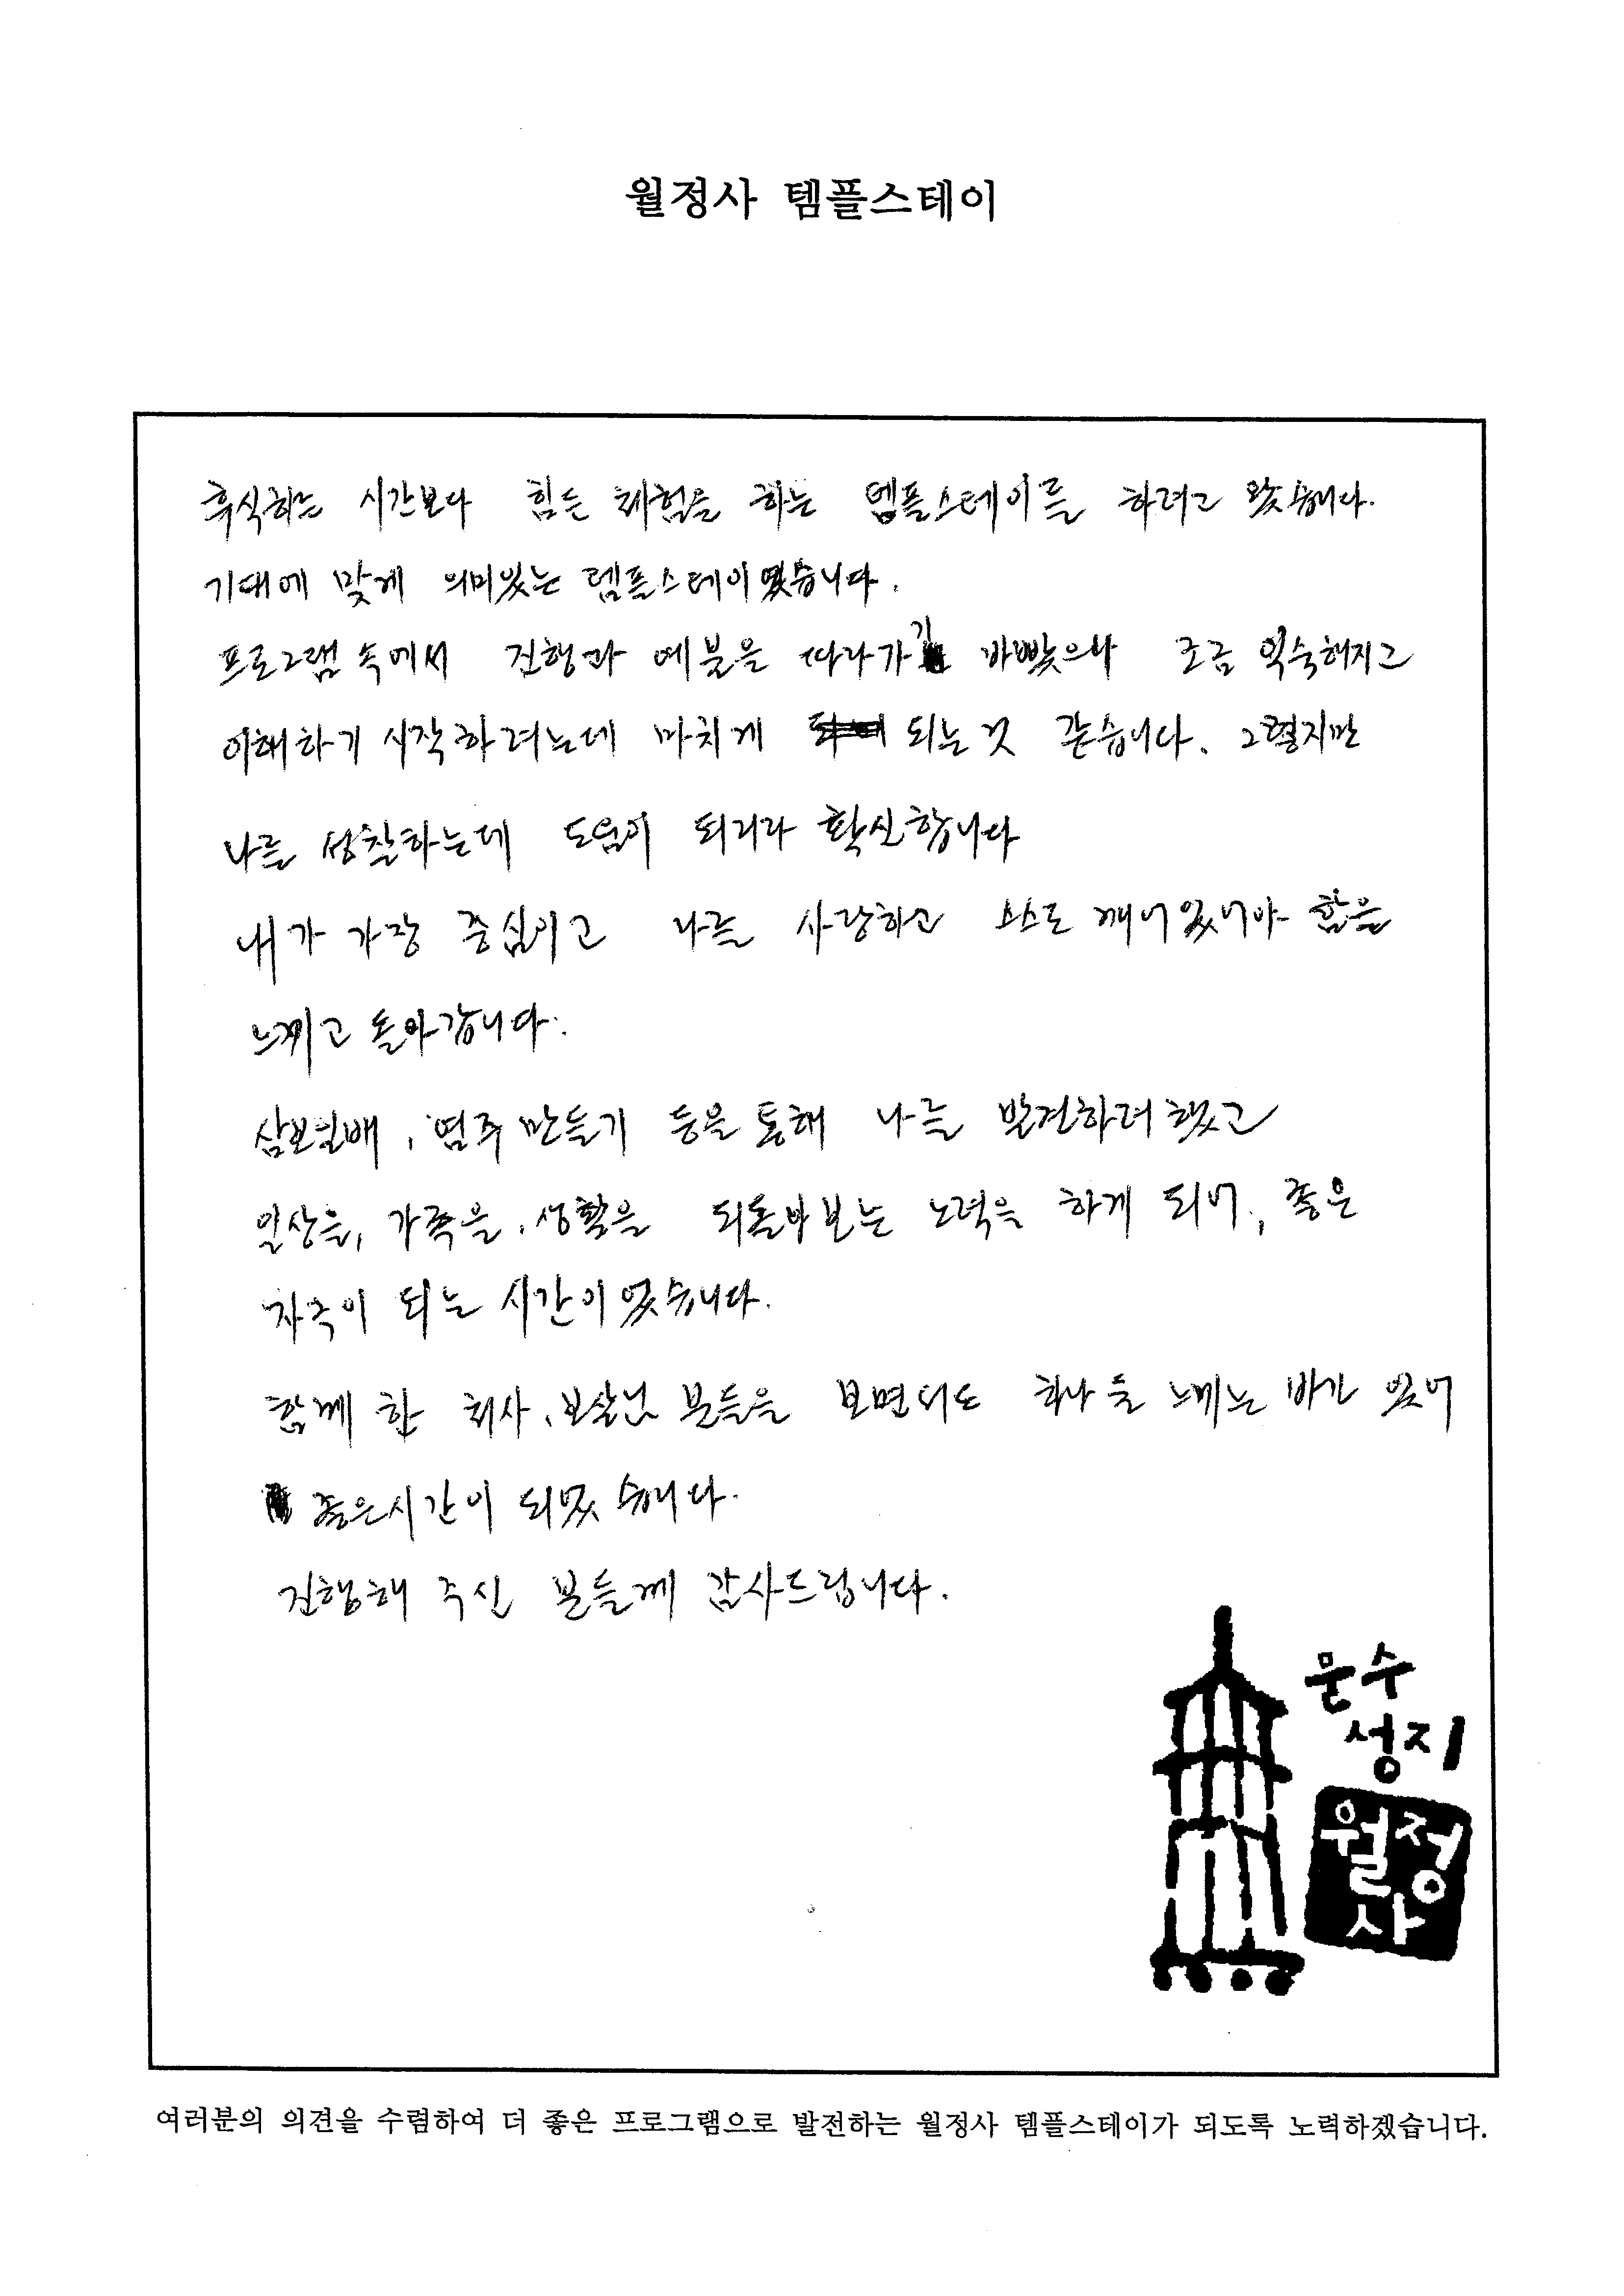 월정사 템플스테이
휴식하는 시간보다 힘든 체험을 하는 템플스테이를 하려고 왔습니다.
기대에 맞게 의미있는 템플스테이였습니다.
프로그램 속에서 진행과 예불을 따라가기 바빴으나 조금 익숙해지고
이해하기 시작하려는데 마치게 되는 것 같습니다. 그렇지만
나를 성찰하는데 도움이 되리라 확신합니다
내가 가장 중심이고 나를 사랑하고 스스로 깨어있어야 함을
느끼고 돌아갑니다.
삼보일배, 염주 만들기 등을 통해 나를 발견하려 했고
일상을, 가족을, 생활을 되돌아보는 노력을 하게 되어, 좋은
자극이 되는 시간이었습니다.
함께 한 처사, 보살님 분들을 보면서도 하나 둘 느끼는 바가 있어
좋은시간이 되었습니다.
진행해 주신 분들께 감사드립니다.
문수
성지
월정
사
여러분의 의견을 수렴하여 더 좋은 프로그램으로 발전하는 월정사 템플스테이가 되도록 노력하겠습니다.